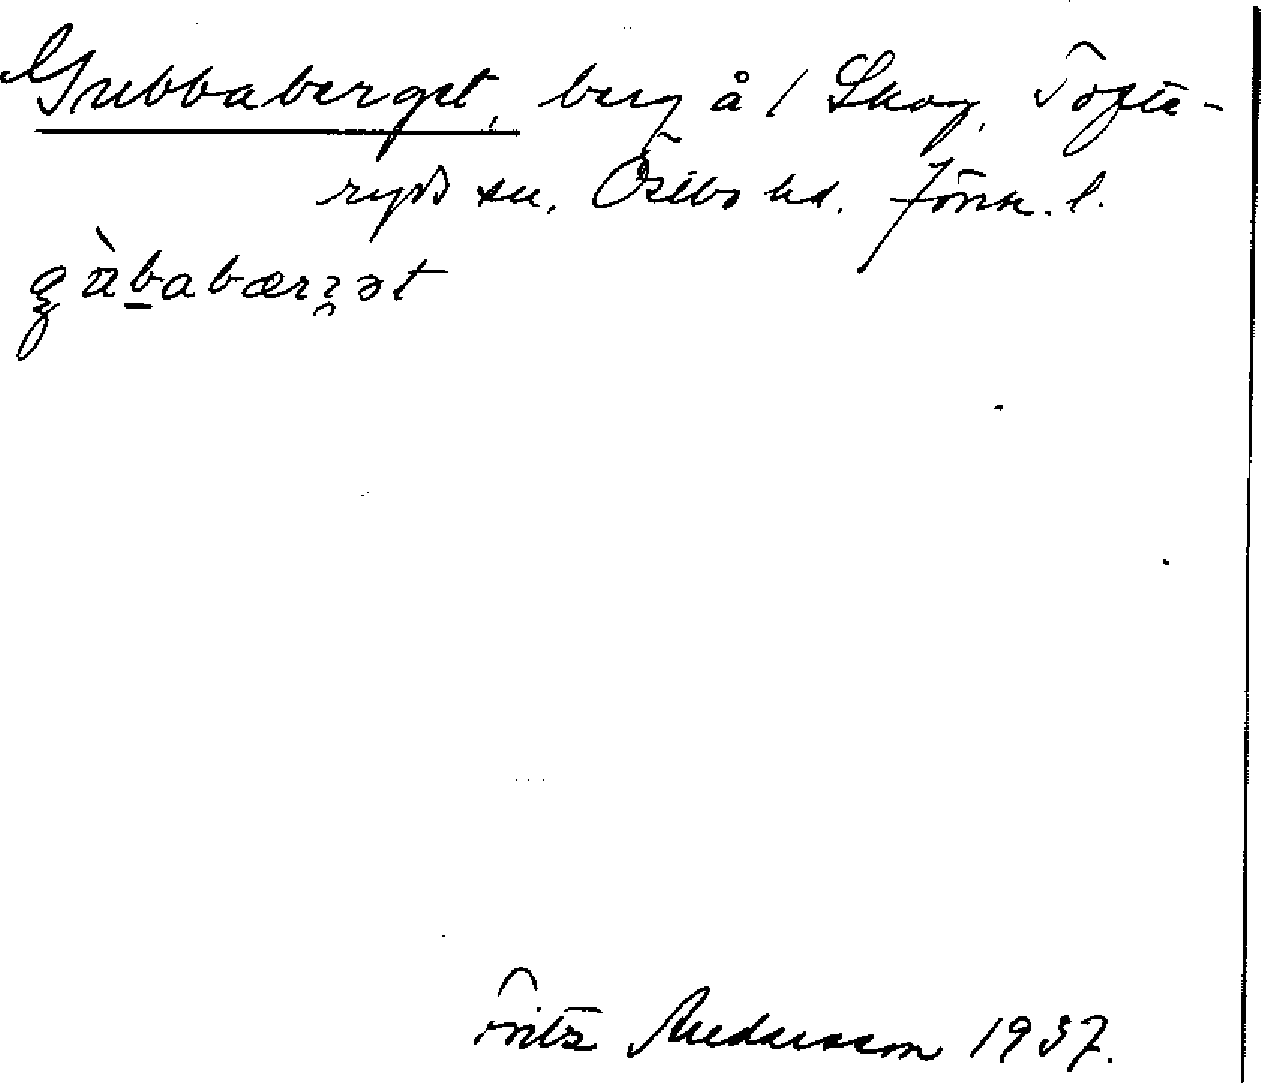 Gubbaberget, berg å / Skog, Tofta-
ryds sn. Östbo hd. Jönk. l.
Fritz Andersson 1937.